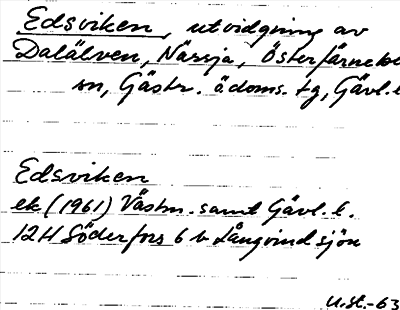 Edsviken, utvidgning av
Dalälven, Nässja, Österfärnebo
sn, Gästr. ådoms. tg, Gävl. l
Edsviken
ek (1961) Västm. samt Gävl. l.
12H Söderfors 6 b Långvindsjön
U.st.-63